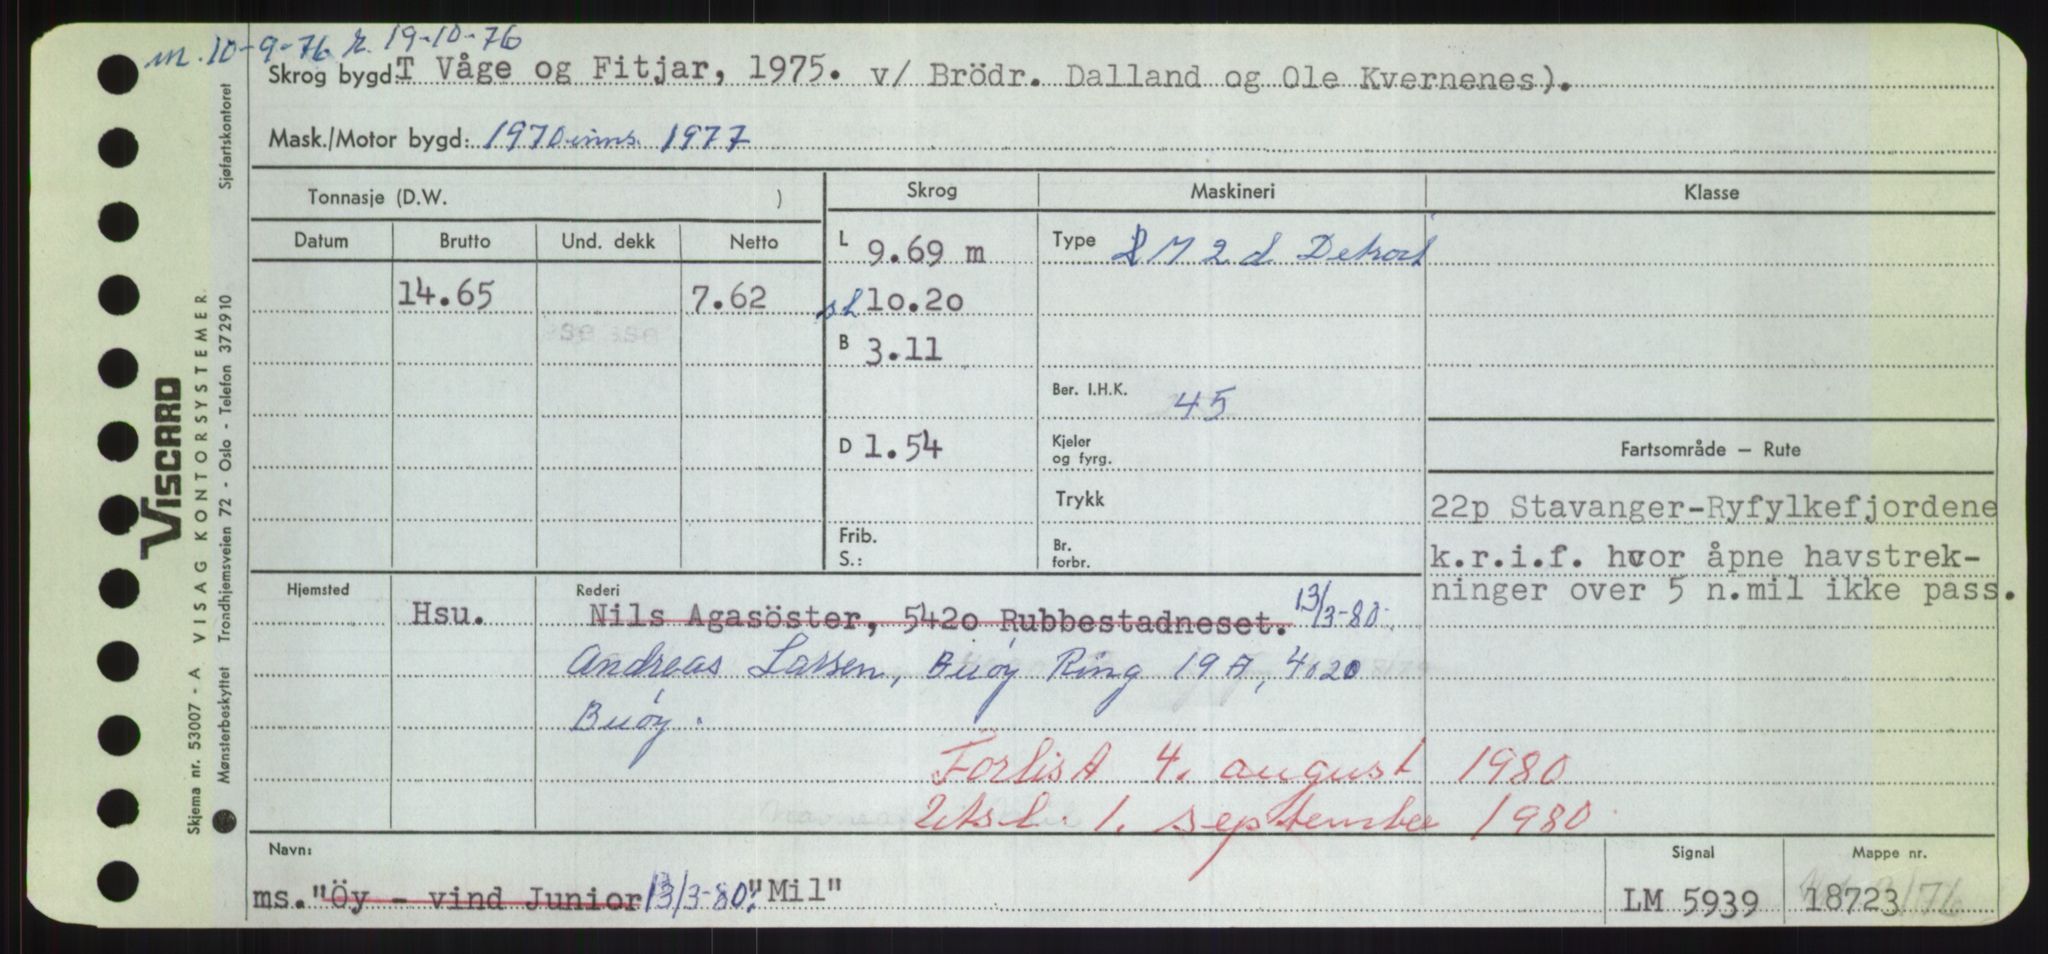 m. 10-9-76 k. 19-10-76
Skrog bygd: T Våge og Fitjar, 1975. v/ Brödr. Dalland og Ole Kvernenes).
Mask./Motor bygd: 1970 inns. 1977
Tonnasje (D.W. ) Skrog Maskineri Klasse
Datum Brutto Und. dekk Netto L 9.69 m Type 2 d Detroit
14.65 7.62 sL 10.20
B 3.11
Ber. I.H.K. 45
D 1.54 Kjeler og fyrg. Fartsområde — Rute
Trykk 22p Stavanger-Ryfylkefjordene
Frib. S.: Br. forbr. k.r.i.f. hvor åpne havstrek-
ninger over 5 n.mil ikke pass.
Hjemsted Rederi
Hsu. Nils Agasöster, 5420 Rubbestadneset. 13/3-80.
Andreas Larsen, Buøy Ring 19 A, 4020
Buøy.
Forlist 4. august 1980
Utsl. 1. september 1980.
Navn: Signal Mappe nr.
ms. "Öy - vind Junior 13/3-80. "Mil" LM 5939 18723/76
VISCARD
VISAG KONTORSYSTEMER
Skjema nr. 53007 - A
Mønsterbeskyttet Trondhjemsveien 72 - Oslo - Telefon 372910 Sjøfartskontoret